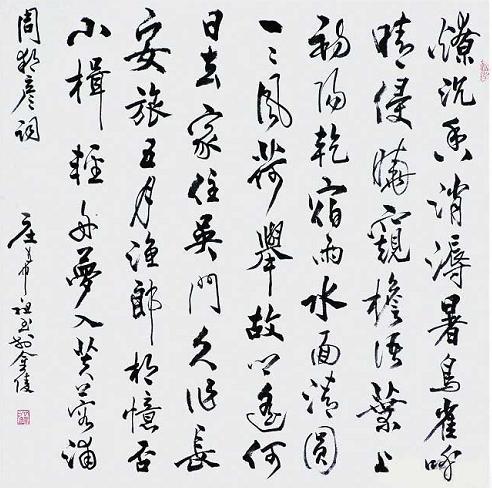 燎沉香消溽暑鳥雀呼
晴侵曉窺檐語葉上
初陽乾宿雨水面清圓
一一風荷舉故鄉遙何
日去家住吳門久作長
安旅五月漁郎相憶否
小楫輕舟夢入芙蓉浦
周邦彥詞 庄希祖書於金陵